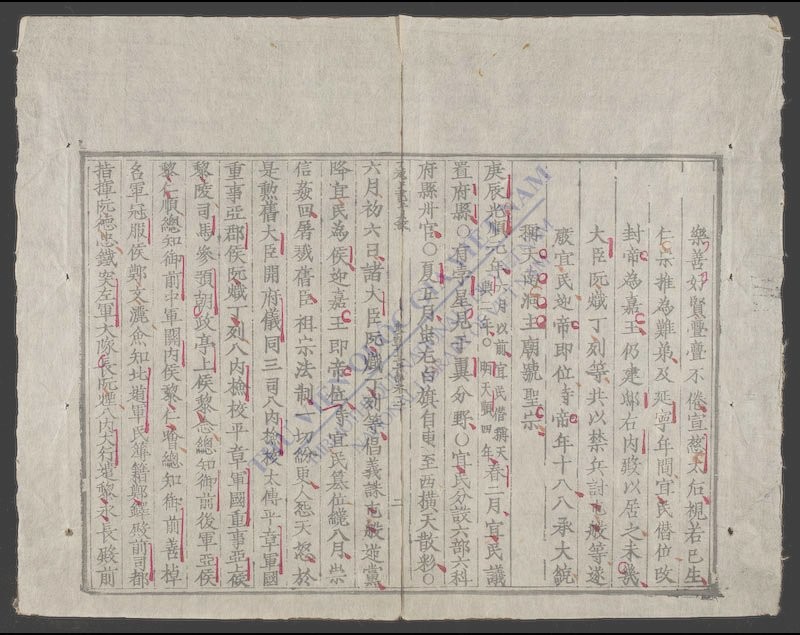 樂善好賢亹亹不倦宣慈太后視若己生
仁宗推為難弟及延寧年間宜民僭位改
封帝為嘉王仍建邸右內殿以居之未幾
大臣阮熾丁列等共以禁兵討屯般等遂
廢宜民迎帝即位時帝年十八入承大統
稱天南洞主廟號聖宗
庚辰光順元年六月以前宜民僭稱天興二年○明天順四年春二月宜民議
置府縣○有字星見于翼分野○宜民分設六部六科
府縣州官○夏五月蚩尤白旗自東至西橫天散彩○
六月初六日諸大臣阮熾丁列等倡義誅屯般逆黨
降宜民為侯迎嘉王即帝位時宜民篡位纔八月崇
信姦回屠戮舊臣祖宗法制一切紛更人怨天怒於
是勲舊大臣開府儀同三司入內檢校太傅平章軍國
重事亞郡侯阮熾丁列入內檢校平章軍國重事亞侯
黎陵司馬參預朝政亭上侯黎念總知御前後軍亞侯
黎仁順總知御前中軍關內侯黎仁𫯳總知御前善棹
各軍冠服侯鄭文灑僉知北道軍民簿籍鄭鐸殿前司都
指揮阮德忠鐵突左軍大隊長阮煙入內大行遣黎永長殿前